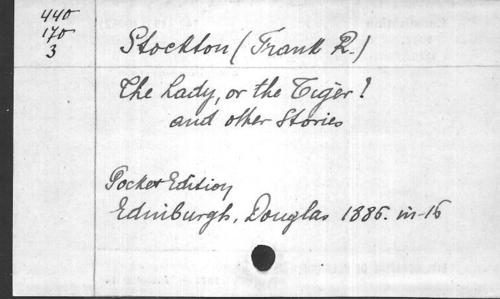 440
170
3
Stockton (Frank R.)
The Lady, or the Tiger!
and other Stories
Pocket Edition
Edinburgh, Douglas 1886. in-16